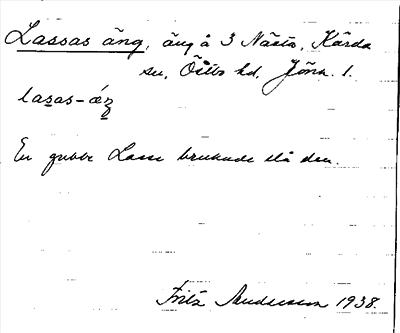 Lassas äng, äng å 3 Näsbo, Kärda
sn, Östbo hd, Jönk. l.
lasas-áz
En gubbe Lasse brukade slå den.
Fritz Andersson 1938.